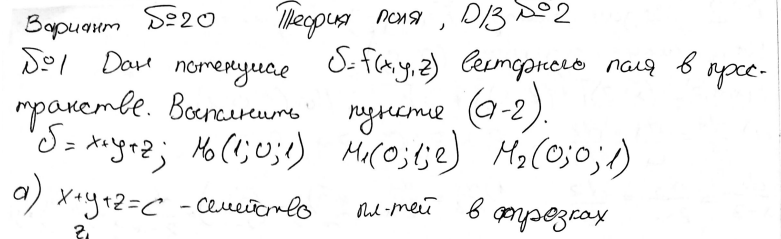 Вариант №20 Теория поля, D/З №2
№1 Дан потенциал U=f(x,y,z) векторного поля в прос-
транстве. Восполнить пункты (а-г).
U = x+y+z; M₀(1;0;1) M₁(0;1;2) M₂(0;0;1)
а) x+y+z=C - семейство пл-тей в отрезках
z